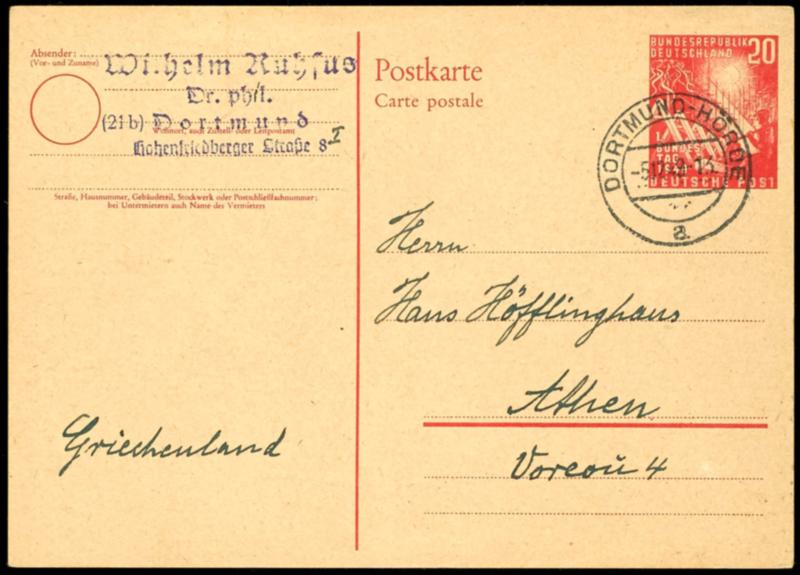 Absender:
(Vor- und Zuname)
Wilhelm Ruhfus
Dr. phil.
(21b) Dortmund
Wohnort, auch Zustell- oder Leitpostamt
Hohenfriedberger Straße 8 I
Straße, Hausnummer, Gebäudeteil, Stockwerk oder Postschließfachnummer;
bei Untermietern auch Name des Vermieters
Griechenland
Postkarte
Carte postale
BUNDESREPUBLIK 20
DEUTSCHLAND
BUNDES
TAG
DEUTSCHE POST
DORTMUND-HÖRDE
a
Herrn
Hans Höfflinghaus
Athen
Voreou 4